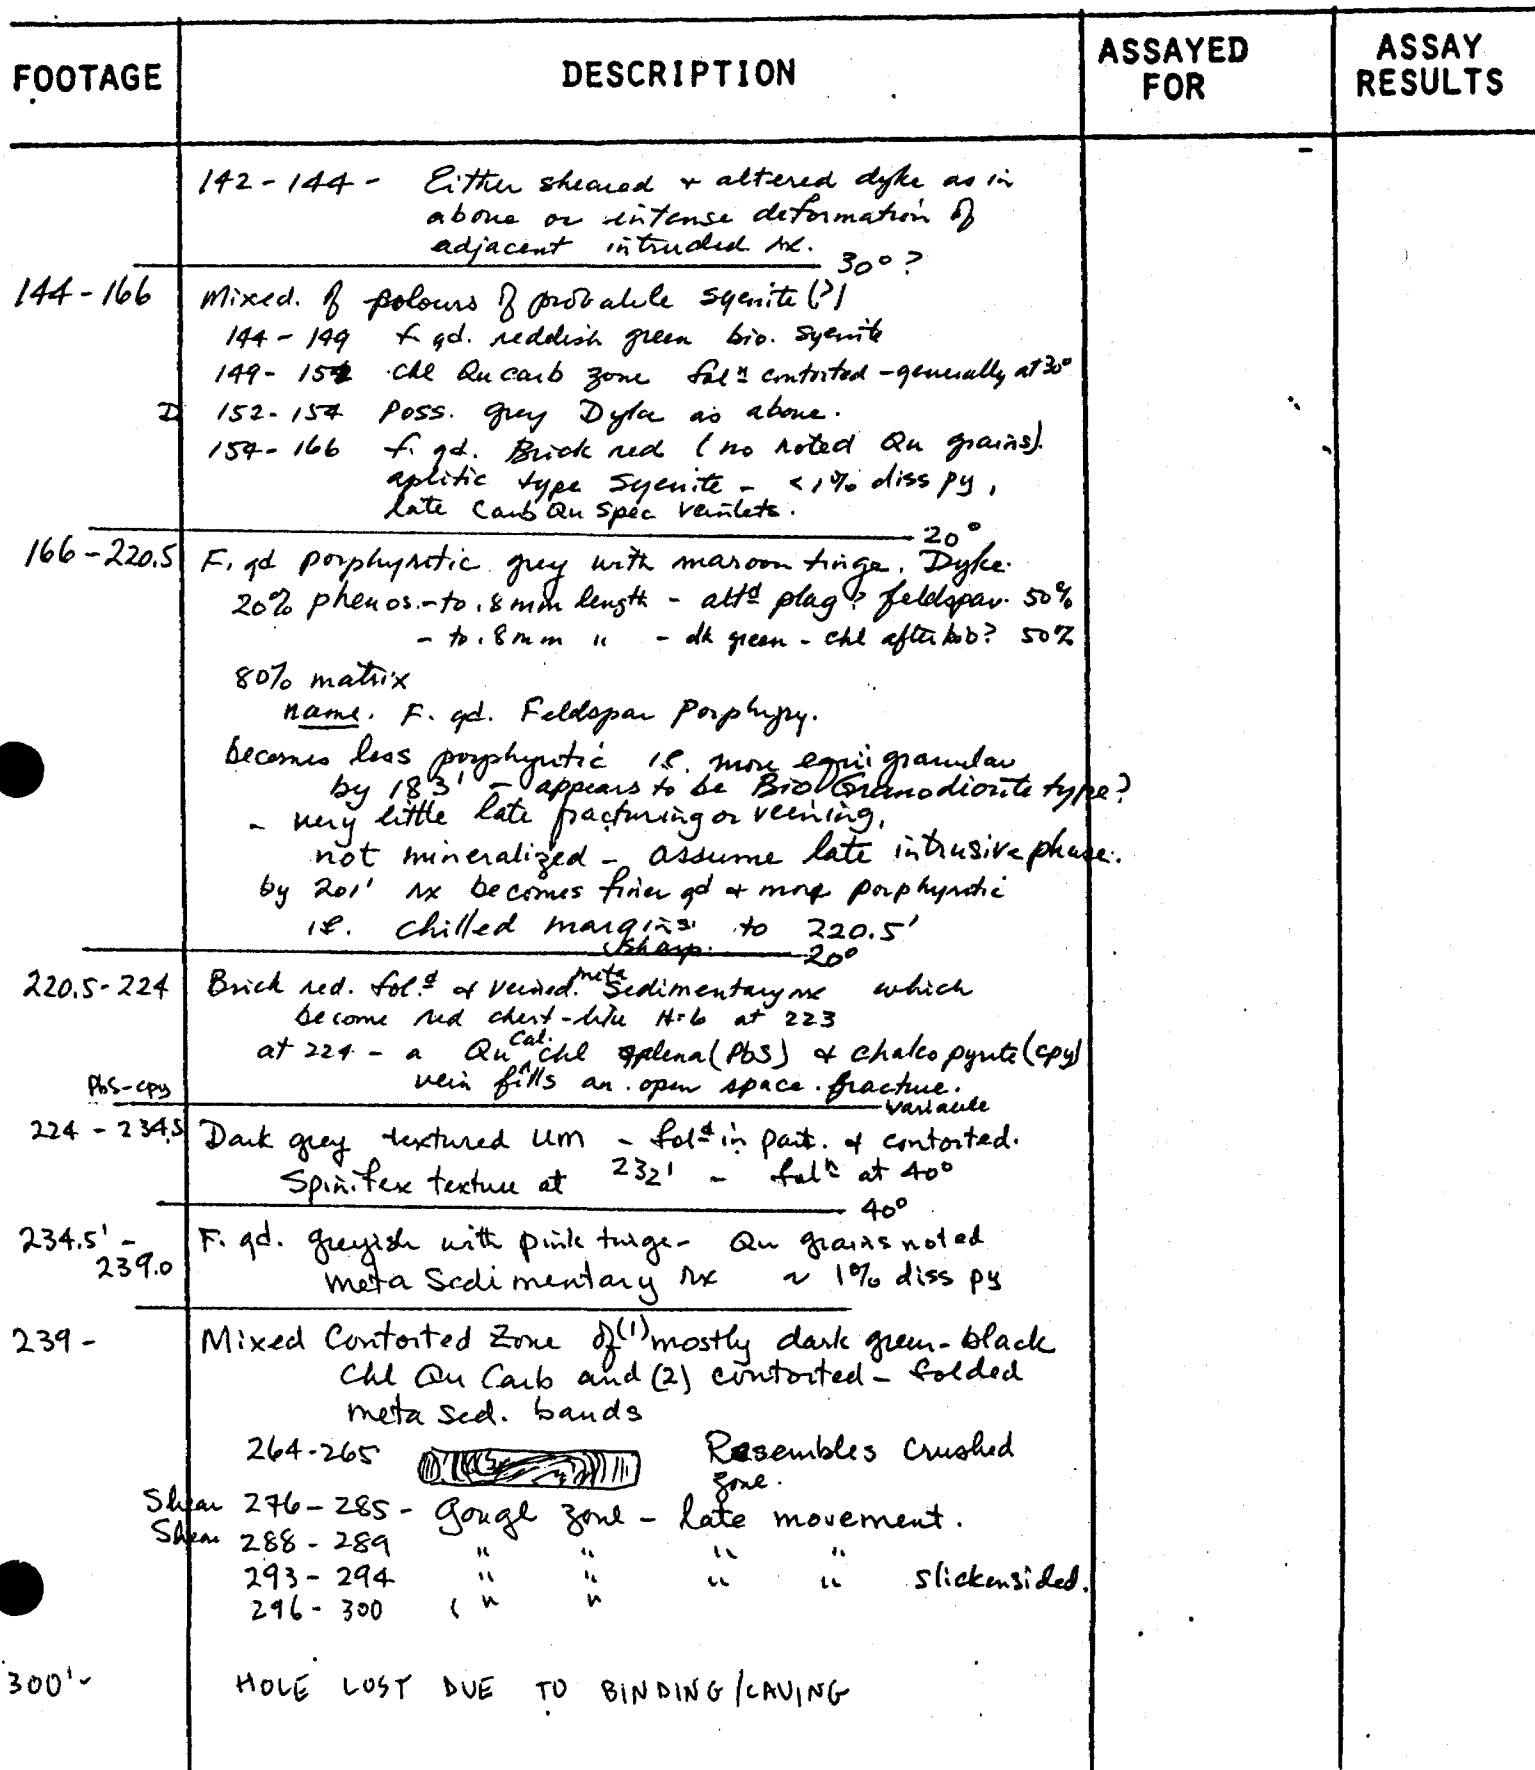 FOOTAGE DESCRIPTION ASSAYED FOR ASSAY RESULTS
142-144- Either sheared & altered dyke as in
above or intense deformation of
adjacent intruded rx.
30°?
144-166 Mixed. of colours of probable syenite (?)
144-149 f. gd. reddish green bio. syenite
149-152 chl Qu carb zone folⁿ contorted - generally at 30°
D 152-154 Poss. grey Dyke as above.
154-166 f. gd. Brick red (no noted Qu grains).
aplitic type Syenite - <1% diss py,
late Carb Qu Spec veinlets.
20°
166-220.5 F. gd porphyritic grey with maroon tinge. Dyke.
20% phenos.-to .8mm length - altᵈ plag? feldspar. 50%
- to .8mm " - dk green - chl after hob? 50%
80% matrix
name. F. gd. Feldspar Porphyry.
becomes less porphyritic i.e. more equigranular
by 183' - appears to be Bio Granodiorite type?
- very little late fracturing or veining,
not mineralized - assume late intrusive phase.
by 201' rx becomes finer gd & more porphyritic
i.e. chilled margins to 220.5'
sharp. 20°
220.5-224 Brick red. folᵈ & veined. meta Sedimentary rx which
become red chert-like H=6 at 223
at 224 - a Qu Cal. chl galena (PbS) & chalcopyrite (cpy)
PbS-cpy vein fills an open space fracture.
variable
224 - 234.5 Dark grey textured UM - folᵈ in part. & contorted.
Spinifex texture at 232' - folⁿ at 40°
40°
234.5' - F. gd. greyish with pink tinge- Qu grains noted
239.0 meta Sedimentary rx ~ 1% diss py
239- Mixed Contorted Zone of (1) mostly dark green-black
Chl Qu Carb and (2) contorted - folded
meta sed. bands
264-265 Resembles Crushed
zone.
Shear 276-285- Gouge zone - late movement.
Shear 288-289 " " " "
293-294 " " " " slickensided.
296-300 ( " "
300'- HOLE LOST DUE TO BINDING/CAVING